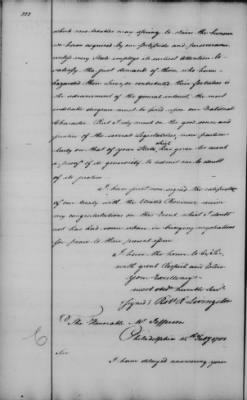 which new lawless may spring, to stain the honour
we have acquired by our fortitude and perseverance
unless every State employs its earliest attention to
satisfy the just demands of those who have
hazarded their lives, or contributed their fortunes to
the advancement of the general interest, the most
indelible disgrace must be fixed upon our National
Character. But I rely much on the good sense and
justice of the several Legislatures, more particu-
larly on that of your State, which has given so much
a proof of its generosity to admit no doubt
of its justice
I have just now signed the ratification
of our treaty with the United Provinces receive
my congratulations on this Event which I doubt
not has had some share in bringing negotiations
for peace to their present
I have the honor to be Sir
with great Respect and Esteem
Your Excellency's
most obedt humble Servt
signed Robt R Livingston
The Honorable Mr Jefferson
Philadelphia Feby
Sir
I have delayed answering your